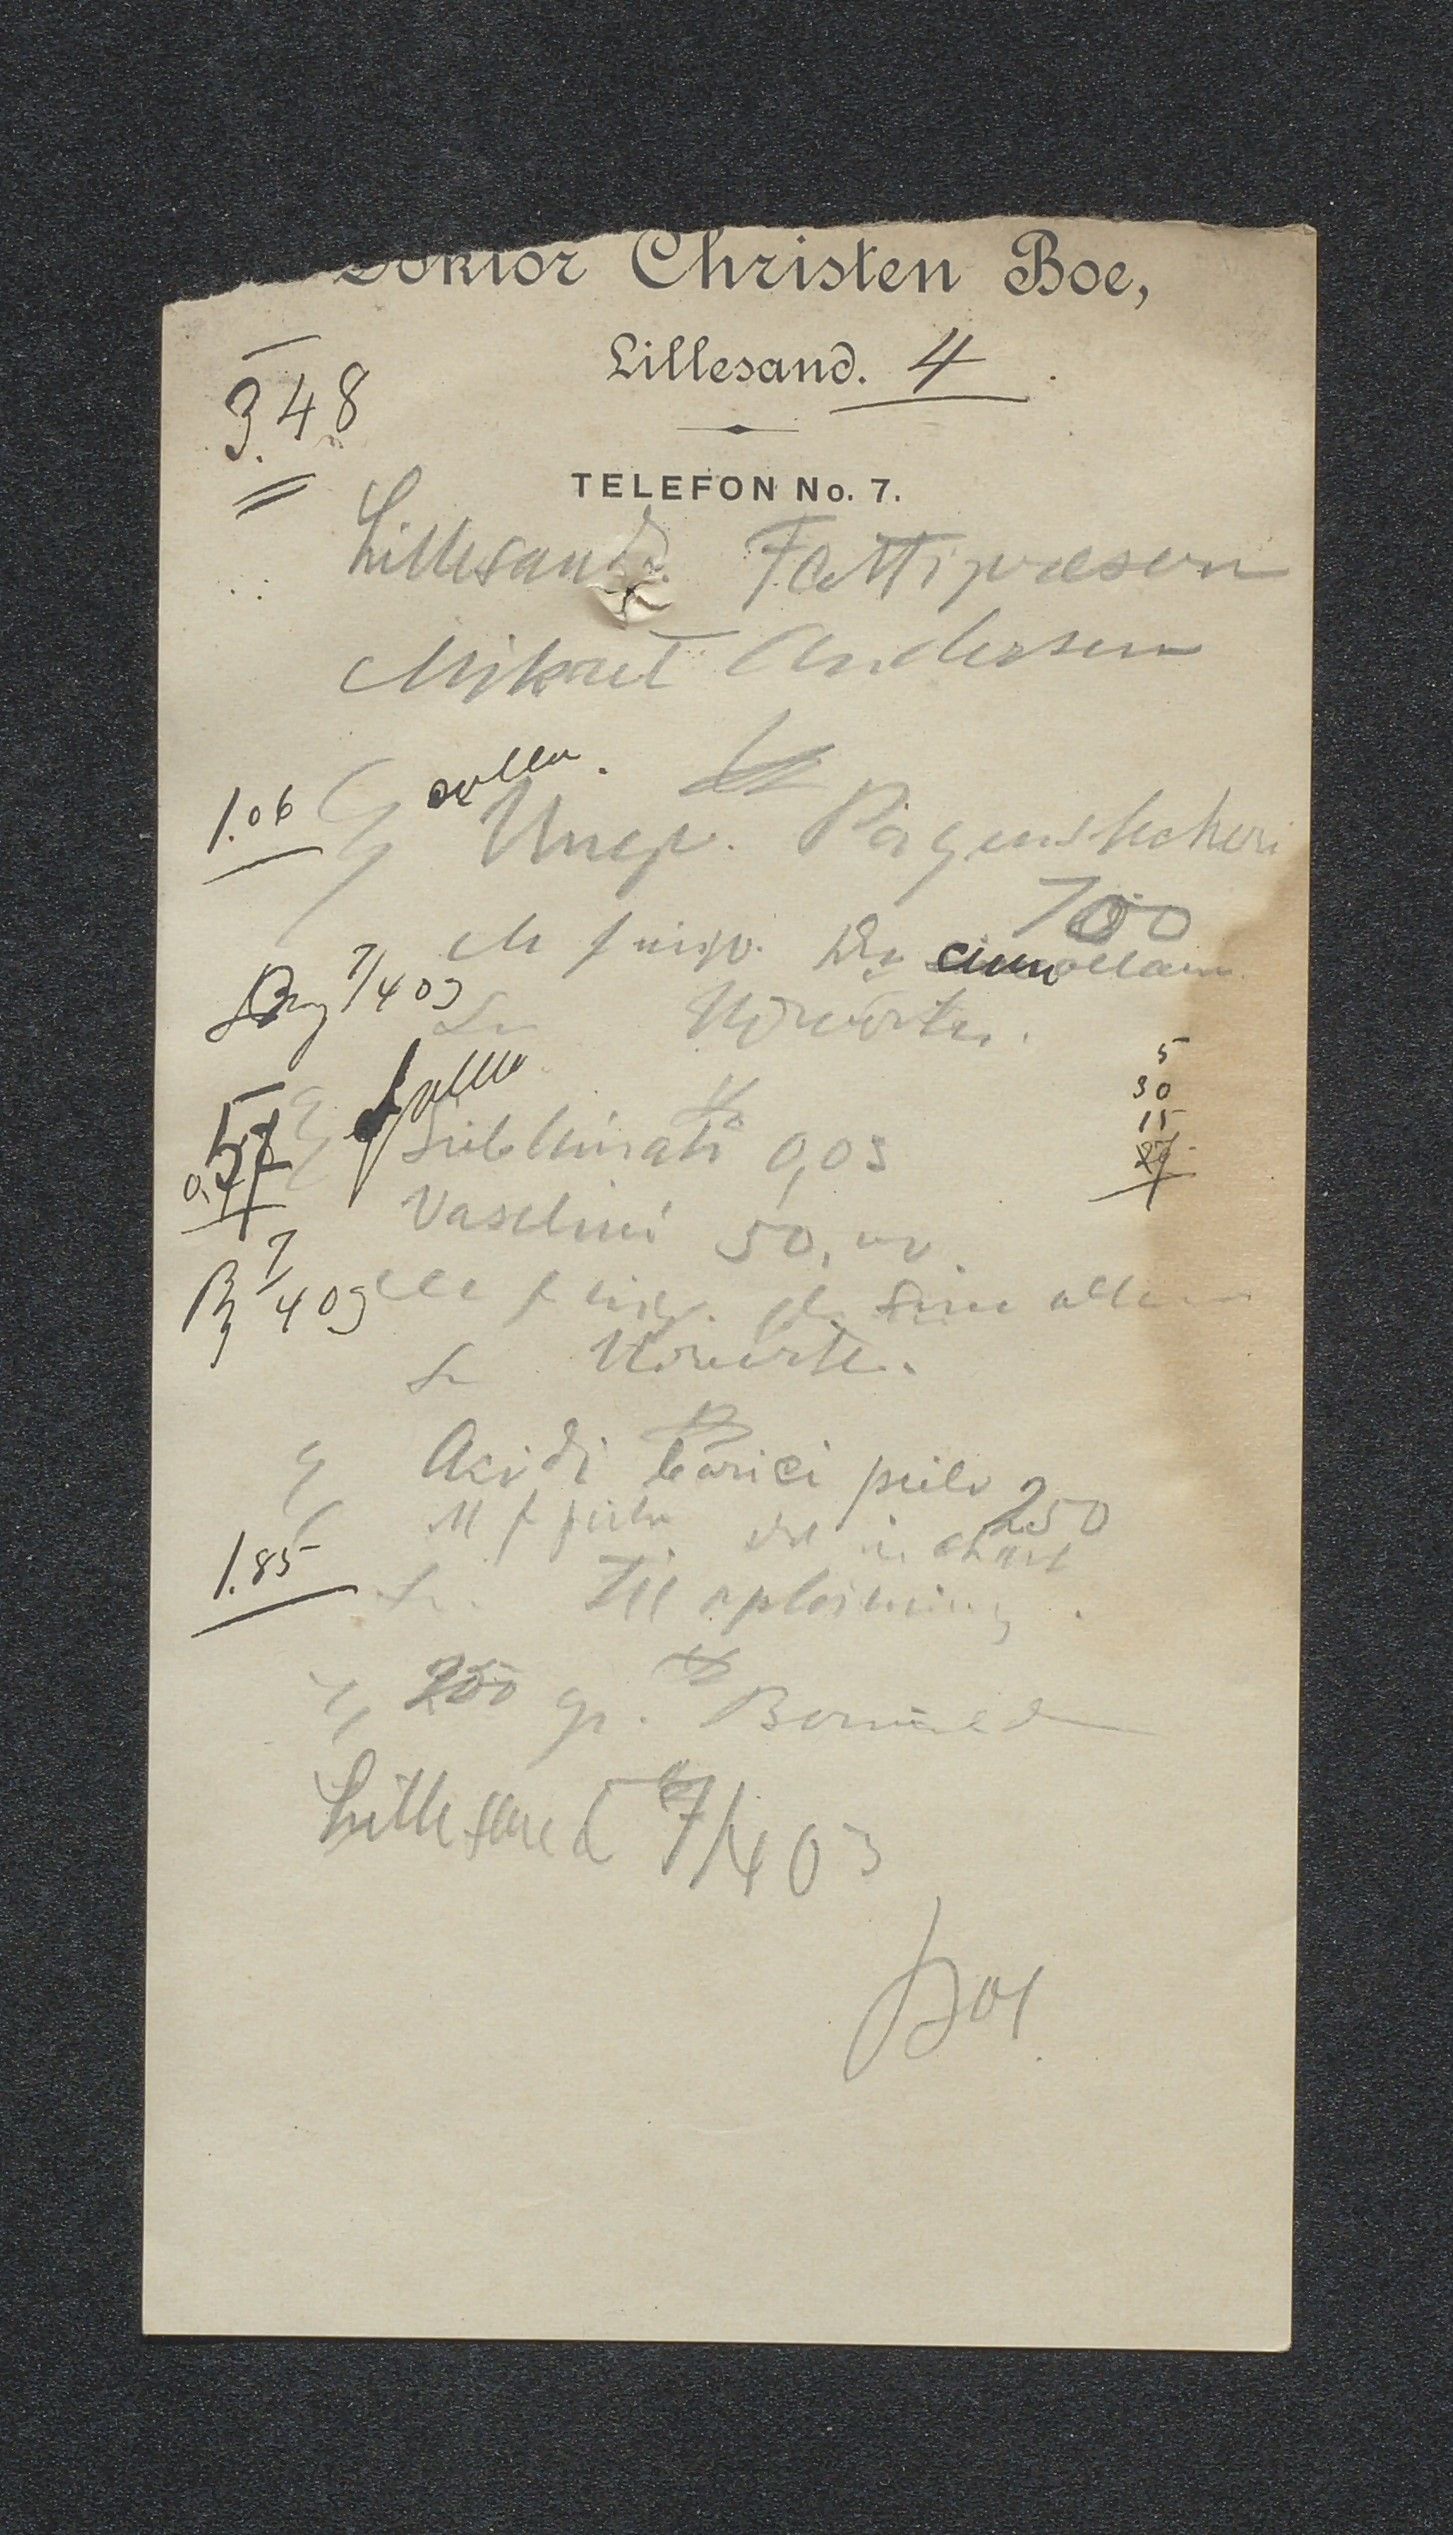 Doktor Christen Boe,
Lillesand. 4
3.48
TELEFON No. 7.
Lillesands Fattigvæsen
Mikael Andersen
1.06 Ungv. Pagenstecheri
100
M f ungv. Ds cum ollam
7/4 03 S. Udvortes.
5
30
15
0.57 Sublimati 0,05
Vaselini 50,00
7/4 03 M f ungv. Ds sine olla
S. Udvortes.
Acidi borici pulv 250
M f pulv det in chart
1.85 S. Til opløsning.
250 gr. Borvand
Lillesand 7/4 03
Boe